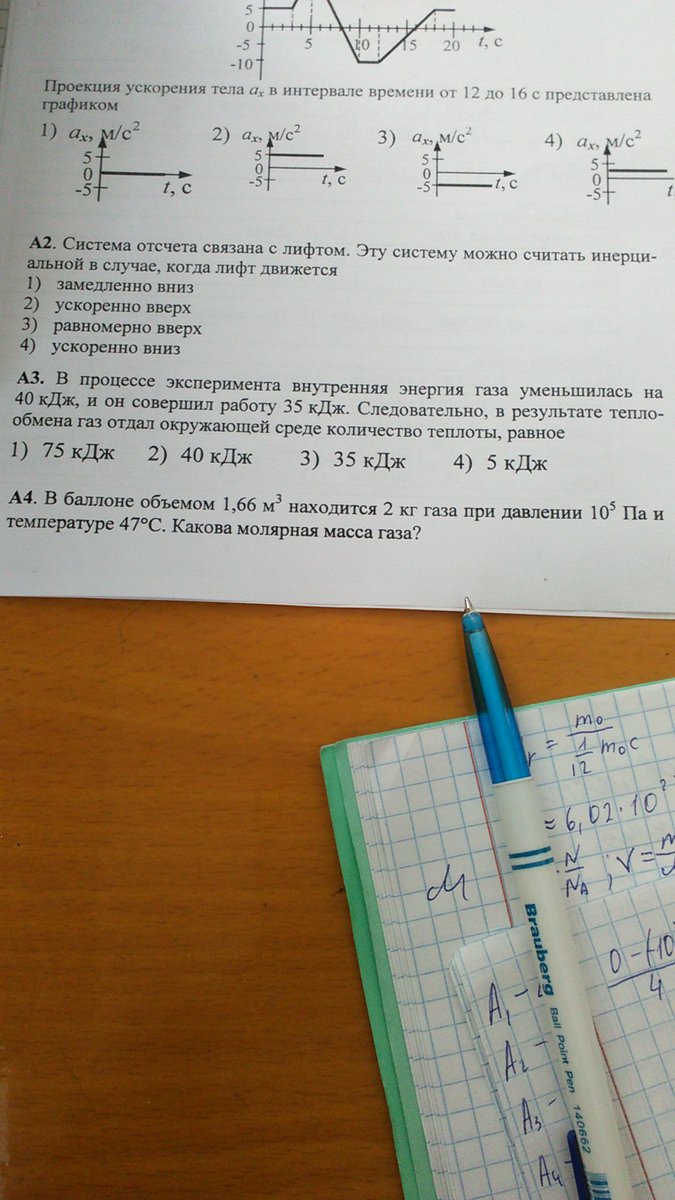 5
0
-5
-10
5 10 15 20 t, с
Проекция ускорения тела aₓ в интервале времени от 12 до 16 с представлена
графиком
1) aₓ, м/с² 2) aₓ, м/с² 3) aₓ, м/с² 4) aₓ, м/с²
5 5 5 5
0 0 0 0
-5 t, с -5 t, с -5 t, с -5 t
А2. Система отсчета связана с лифтом. Эту систему можно считать инерци-
альной в случае, когда лифт движется
1) замедленно вниз
2) ускоренно вверх
3) равномерно вверх
4) ускоренно вниз
А3. В процессе эксперимента внутренняя энергия газа уменьшилась на
40 кДж, и он совершил работу 35 кДж. Следовательно, в результате тепло-
обмена газ отдал окружающей среде количество теплоты, равное
1) 75 кДж 2) 40 кДж 3) 35 кДж 4) 5 кДж
А4. В баллоне объемом 1,66 м³ находится 2 кг газа при давлении 10⁵ Па и
температуре 47°С. Какова молярная масса газа?
r = m₀ / 1/12 m₀c
≈ 6,02·10²
N/Nᴀ ; V = m
M
0-(-10
4
A₁ -
A₂ -
A₃ -
A₄ -
Brauberg Ball Point Pen 140662